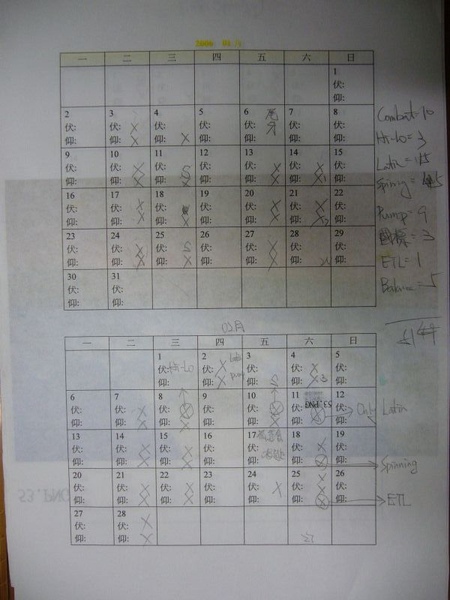 一 二 三 四 五 六 日
1
伏:
仰:
2 3 4 5 6 7 8
伏: 伏: 伏: 伏: 伏: 伏: 伏:
仰: 仰: 仰: 仰: 仰: 仰: 仰:
9 10 11 12 13 14 15
伏: 伏: 伏: 伏: 伏: 伏: 伏:
仰: 仰: 仰: 仰: 仰: 仰: 仰:
16 17 18 19 20 21 22
伏: 伏: 伏: 伏: 伏: 伏: 伏:
仰: 仰: 仰: 仰: 仰: 仰: 仰:
23 24 25 26 27 28 29
伏: 伏: 伏: 伏: 伏: 伏: 伏:
仰: 仰: 仰: 仰: 仰: 仰: 仰:
30 31
伏: 伏:
仰: 仰:
Combat = 10
Hi-Lo = 3
Pump = 9
= 3
ETL = 1
Balance = 5
02月
一 二 三 四 五 六 日
1 2 3 4 5
伏: Hi-Lo 伏: 伏: 伏: 伏:
仰: 仰: 仰: 仰: 3 仰:
6 7 8 9 10 11 12
伏: 伏: 伏: 伏: 伏: 伏: 伏:
仰: 仰: 仰: 仰: 仰: 仰: 仰:
Latin
13 14 15 16 17 18 19
伏: 伏: 伏: 伏: 伏: 伏: 伏:
仰: 仰: 仰: 仰: 仰: 仰: 仰:
Spinning
20 21 22 23 24 25 26
伏: 伏: 伏: 伏: 伏: 伏: 伏:
仰: 仰: 仰: 仰: 仰: 仰: 仰:
ETL
27 28
伏: 伏:
仰: 仰: